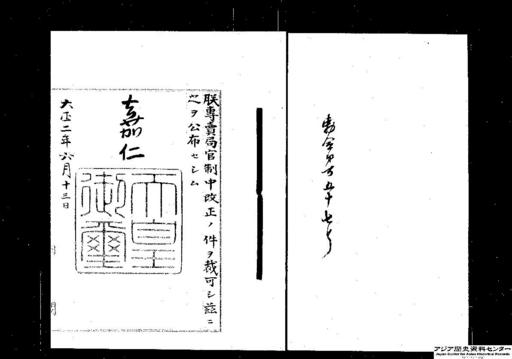 勅令第百五十七号
朕専賣局官制中改正ノ件ヲ裁可シ茲ニ
之ヲ公布セシム
嘉仁
天皇御璽
大正二年六月十三日
アジア歴史資料センター
Japan Center for Asian Historical Records